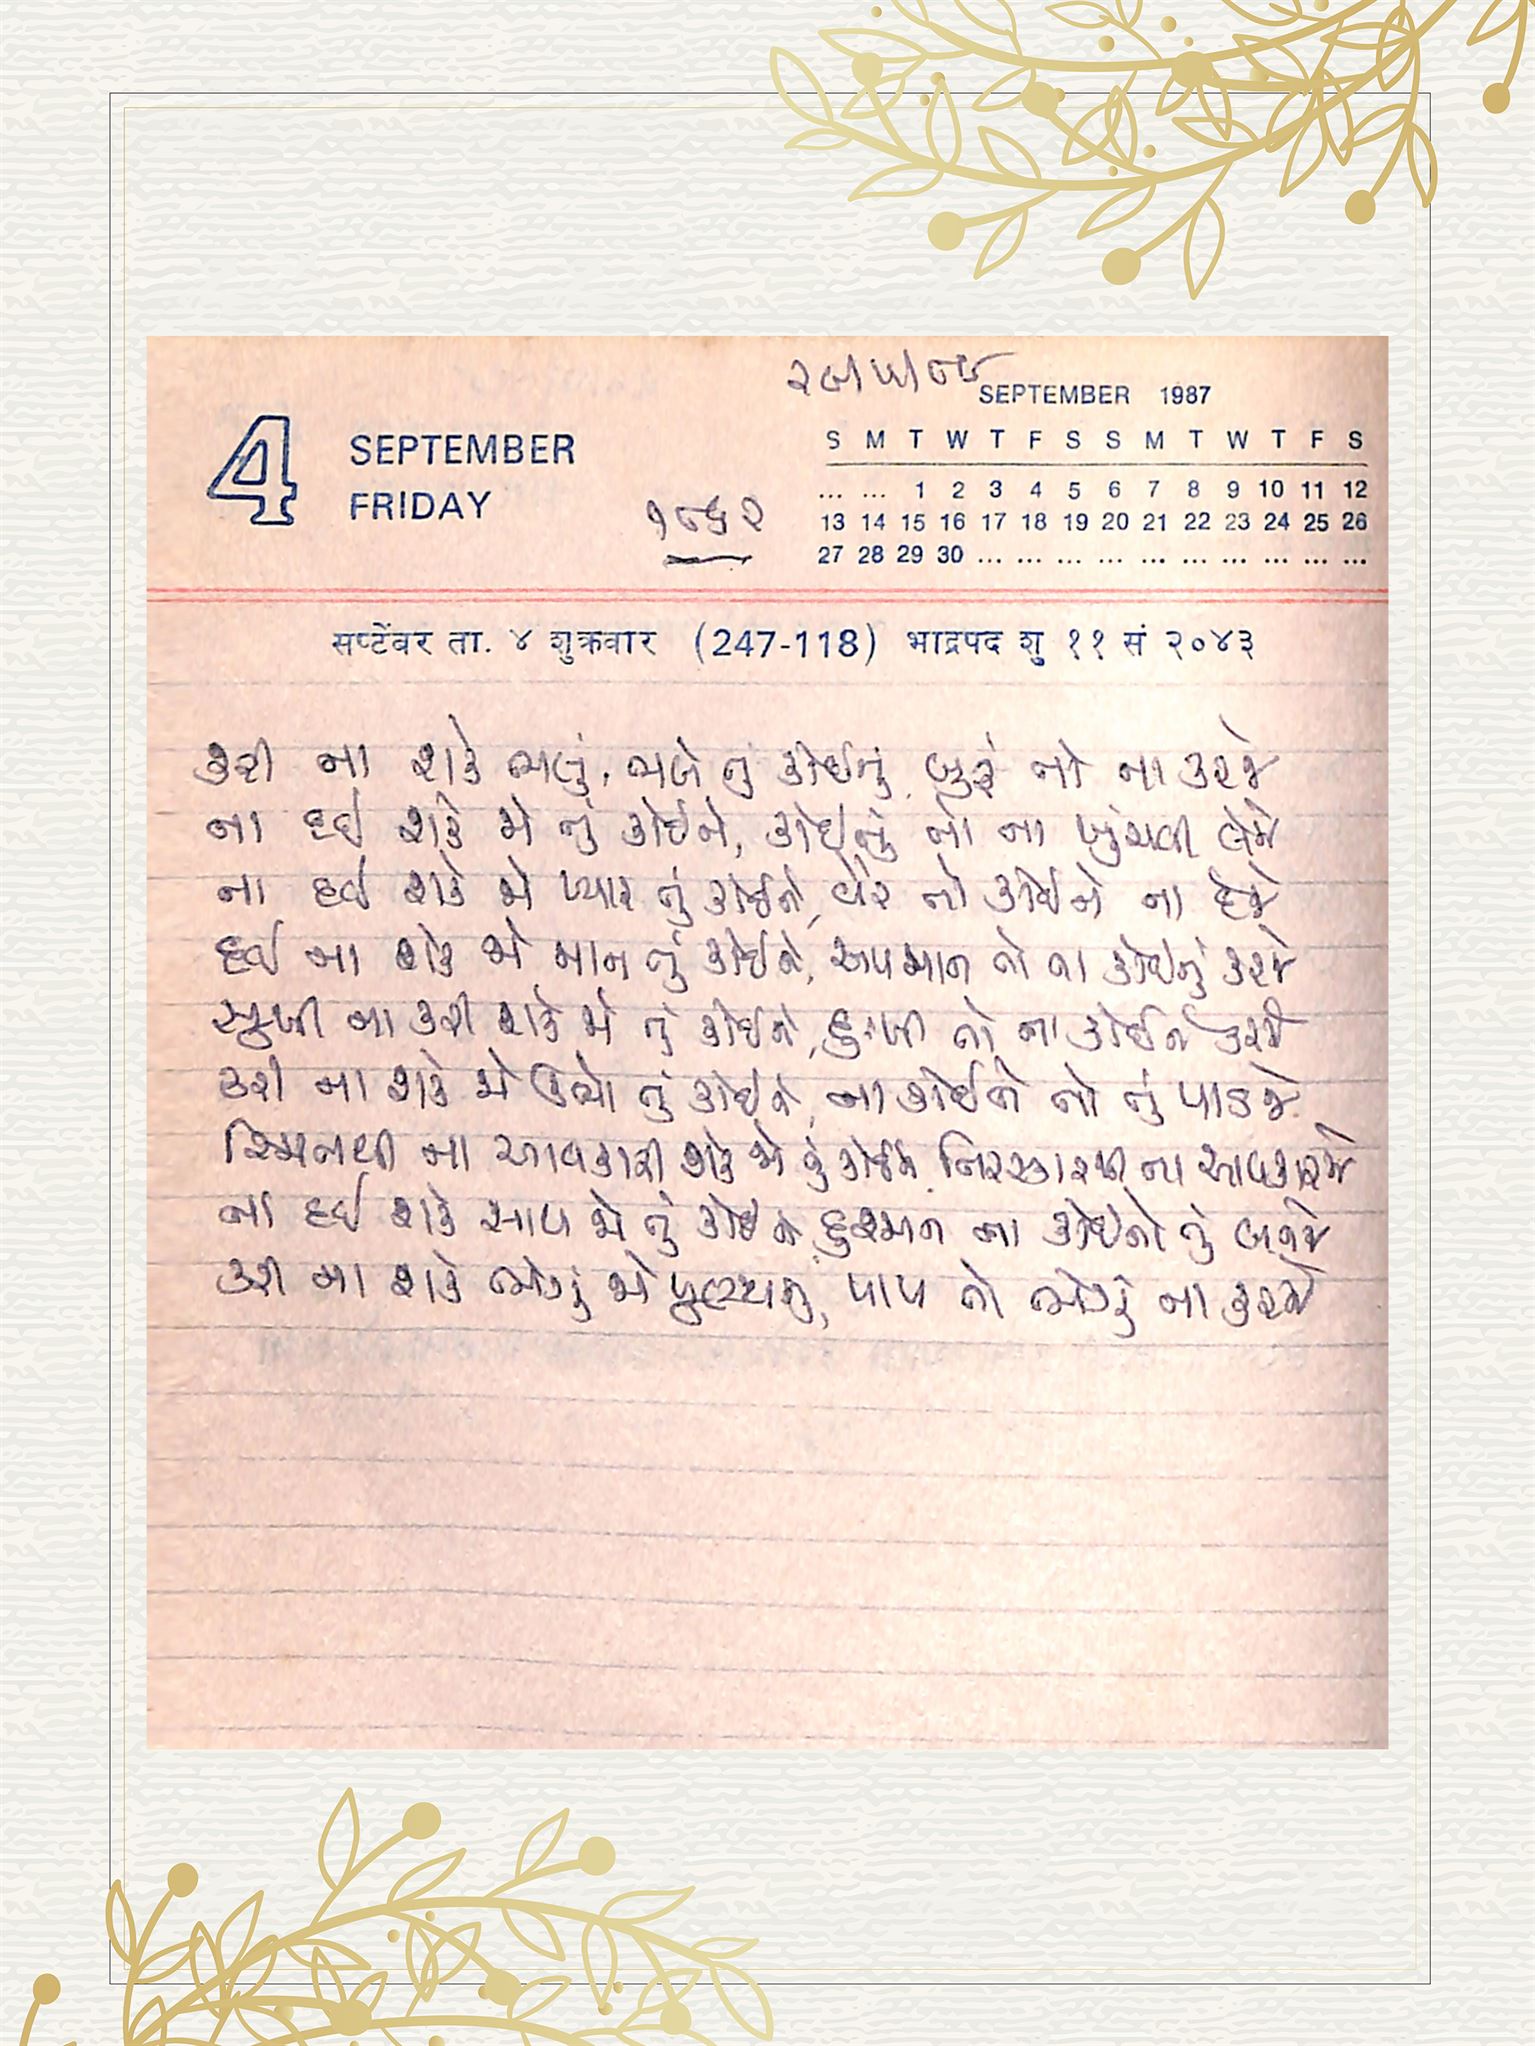 ૨૯/૫/૮૯
SEPTEMBER 1987
S M T W T F S S M T W T F S
... ... 1 2 3 4 5 6 7 8 9 10 11 12
13 14 15 16 17 18 19 20 21 22 23 24 25 26
27 28 29 30 ... ... ... ... ... ... ... ... ... ...
4 SEPTEMBER
FRIDAY
૧૮૬૨
सप्टेंबर ता. ४ शुक्रवार (247-118) भाद्रपद शु ११ सं २०४३
કરી ના શકે ભલું, ભલે તું કોઈનું, બુરું તો ના કરજે
ના દઈ શકે જો તું કોઈને, કોઈનું તો ના ખુંચવી લેજે
ના દઈ શકે જો પ્યાર તું કોઈને, વેર તો કોઈને ના દેજે
દઈ ના શકે જો માન તું કોઈને, અપમાન તો ના કોઈનું કરજે
સુખી ના કરી શકે જો તું કોઈને, દુઃખી તો ના કોઈને કરજે
કરી ના શકે જો ઊભો તું કોઈને, ના કોઈને તો તું પાડજે
સ્મિતથી ના આવકારી શકે જો તું કોઈને, તિરસ્કારથી ના આવકારજે
ના દઈ શકે સાથ જો તું કોઈને, દુશ્મન ના કોઈનો તું બનજે
કરી ના શકે ભેગું જો પુણ્યનું, પાપ તો ભેગું ના કરજે